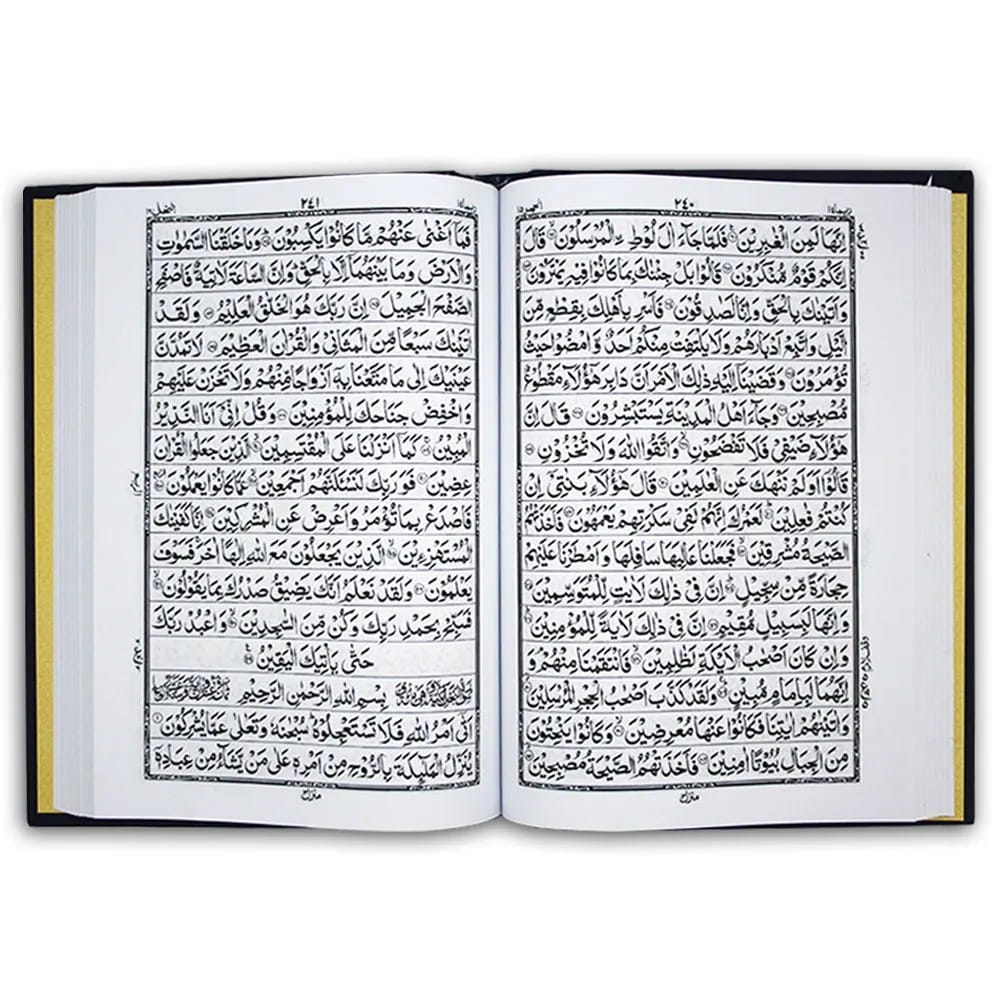 ٢٤٠
اِنَّهَا لَمِنَ الْغٰبِرِيْنَ۝ فَلَمَّا جَآءَ اٰلَ لُوْطِ ۨالْمُرْسَلُوْنَ۝ قَالَ
اِنَّكُمْ قَوْمٌ مُّنْكَرُوْنَ۝ قَالُوْا بَلْ جِئْنٰكَ بِمَا كَانُوْا فِيْهِ يَمْتَرُوْنَ۝
وَاَتَيْنٰكَ بِالْحَقِّ وَاِنَّا لَصٰدِقُوْنَ۝ فَاَسْرِ بِاَهْلِكَ بِقِطْعٍ مِّنَ
الَّيْلِ وَاتَّبِعْ اَدْبَارَهُمْ وَلَا يَلْتَفِتْ مِنْكُمْ اَحَدٌ وَّامْضُوْا حَيْثُ
تُؤْمَرُوْنَ۝ وَقَضَيْنَآ اِلَيْهِ ذٰلِكَ الْاَمْرَ اَنَّ دَابِرَ هٰٓؤُلَآءِ مَقْطُوْعٌ
مُّصْبِحِيْنَ۝ وَجَآءَ اَهْلُ الْمَدِيْنَةِ يَسْتَبْشِرُوْنَ۝ قَالَ اِنَّ
هٰٓؤُلَآءِ ضَيْفِيْ فَلَا تَفْضَحُوْنِ۝ وَاتَّقُوا اللّٰهَ وَلَا تُخْزُوْنِ۝
قَالُوْٓا اَوَلَمْ نَنْهَكَ عَنِ الْعٰلَمِيْنَ۝ قَالَ هٰٓؤُلَآءِ بَنٰتِيْٓ اِنْ
كُنْتُمْ فٰعِلِيْنَ۝ لَعَمْرُكَ اِنَّهُمْ لَفِيْ سَكْرَتِهِمْ يَعْمَهُوْنَ۝ فَاَخَذَتْهُمُ
الصَّيْحَةُ مُشْرِقِيْنَ۝ فَجَعَلْنَا عَالِيَهَا سَافِلَهَا وَاَمْطَرْنَا عَلَيْهِمْ
حِجَارَةً مِّنْ سِجِّيْلٍ۝ اِنَّ فِيْ ذٰلِكَ لَاٰيٰتٍ لِّلْمُتَوَسِّمِيْنَ۝
وَاِنَّهَا لَبِسَبِيْلٍ مُّقِيْمٍ۝ اِنَّ فِيْ ذٰلِكَ لَاٰيَةً لِّلْمُؤْمِنِيْنَ۝
وَاِنْ كَانَ اَصْحٰبُ الْاَيْكَةِ لَظٰلِمِيْنَ۝ فَانْتَقَمْنَا مِنْهُمْ وَ
اِنَّهُمَا لَبِاِمَامٍ مُّبِيْنٍ۝ وَلَقَدْ كَذَّبَ اَصْحٰبُ الْحِجْرِ الْمُرْسَلِيْنَ۝
وَاٰتَيْنٰهُمْ اٰيٰتِنَا فَكَانُوْا عَنْهَا مُعْرِضِيْنَ۝ وَكَانُوْا يَنْحِتُوْنَ
مِنَ الْجِبَالِ بُيُوْتًا اٰمِنِيْنَ۝ فَاَخَذَتْهُمُ الصَّيْحَةُ مُصْبِحِيْنَ۝
٢٤١
فَمَآ اَغْنٰى عَنْهُمْ مَّا كَانُوْا يَكْسِبُوْنَ۝ وَمَا خَلَقْنَا السَّمٰوٰتِ
وَالْاَرْضَ وَمَا بَيْنَهُمَآ اِلَّا بِالْحَقِّ وَاِنَّ السَّاعَةَ لَاٰتِيَةٌ فَاصْفَحِ
الصَّفْحَ الْجَمِيْلَ۝ اِنَّ رَبَّكَ هُوَ الْخَلّٰقُ الْعَلِيْمُ۝ وَلَقَدْ
اٰتَيْنٰكَ سَبْعًا مِّنَ الْمَثَانِيْ وَالْقُرْاٰنَ الْعَظِيْمَ۝ لَا تَمُدَّنَّ
عَيْنَيْكَ اِلٰى مَا مَتَّعْنَا بِهٖٓ اَزْوَاجًا مِّنْهُمْ وَلَا تَحْزَنْ عَلَيْهِمْ
وَاخْفِضْ جَنَاحَكَ لِلْمُؤْمِنِيْنَ۝ وَقُلْ اِنِّيْٓ اَنَا النَّذِيْرُ
الْمُبِيْنُ۝ كَمَآ اَنْزَلْنَا عَلَى الْمُقْتَسِمِيْنَ۝ الَّذِيْنَ جَعَلُوا الْقُرْاٰنَ
عِضِيْنَ۝ فَوَرَبِّكَ لَنَسْـَٔلَنَّهُمْ اَجْمَعِيْنَ۝ عَمَّا كَانُوْا يَعْمَلُوْنَ۝
فَاصْدَعْ بِمَا تُؤْمَرُ وَاَعْرِضْ عَنِ الْمُشْرِكِيْنَ۝ اِنَّا كَفَيْنٰكَ
الْمُسْتَهْزِءِيْنَ۝ الَّذِيْنَ يَجْعَلُوْنَ مَعَ اللّٰهِ اِلٰهًا اٰخَرَ فَسَوْفَ
يَعْلَمُوْنَ۝ وَلَقَدْ نَعْلَمُ اَنَّكَ يَضِيْقُ صَدْرُكَ بِمَا يَقُوْلُوْنَ۝
فَسَبِّحْ بِحَمْدِ رَبِّكَ وَكُنْ مِّنَ السّٰجِدِيْنَ۝ وَاعْبُدْ رَبَّكَ
حَتّٰى يَاْتِيَكَ الْيَقِيْنُ۝
بِسْمِ اللّٰهِ الرَّحْمٰنِ الرَّحِيْمِ
اَتٰٓى اَمْرُ اللّٰهِ فَلَا تَسْتَعْجِلُوْهُ سُبْحٰنَهٗ وَتَعٰلٰى عَمَّا يُشْرِكُوْنَ۝
يُنَزِّلُ الْمَلٰٓئِكَةَ بِالرُّوْحِ مِنْ اَمْرِهٖ عَلٰى مَنْ يَّشَآءُ مِنْ عِبَادِهٖٓ